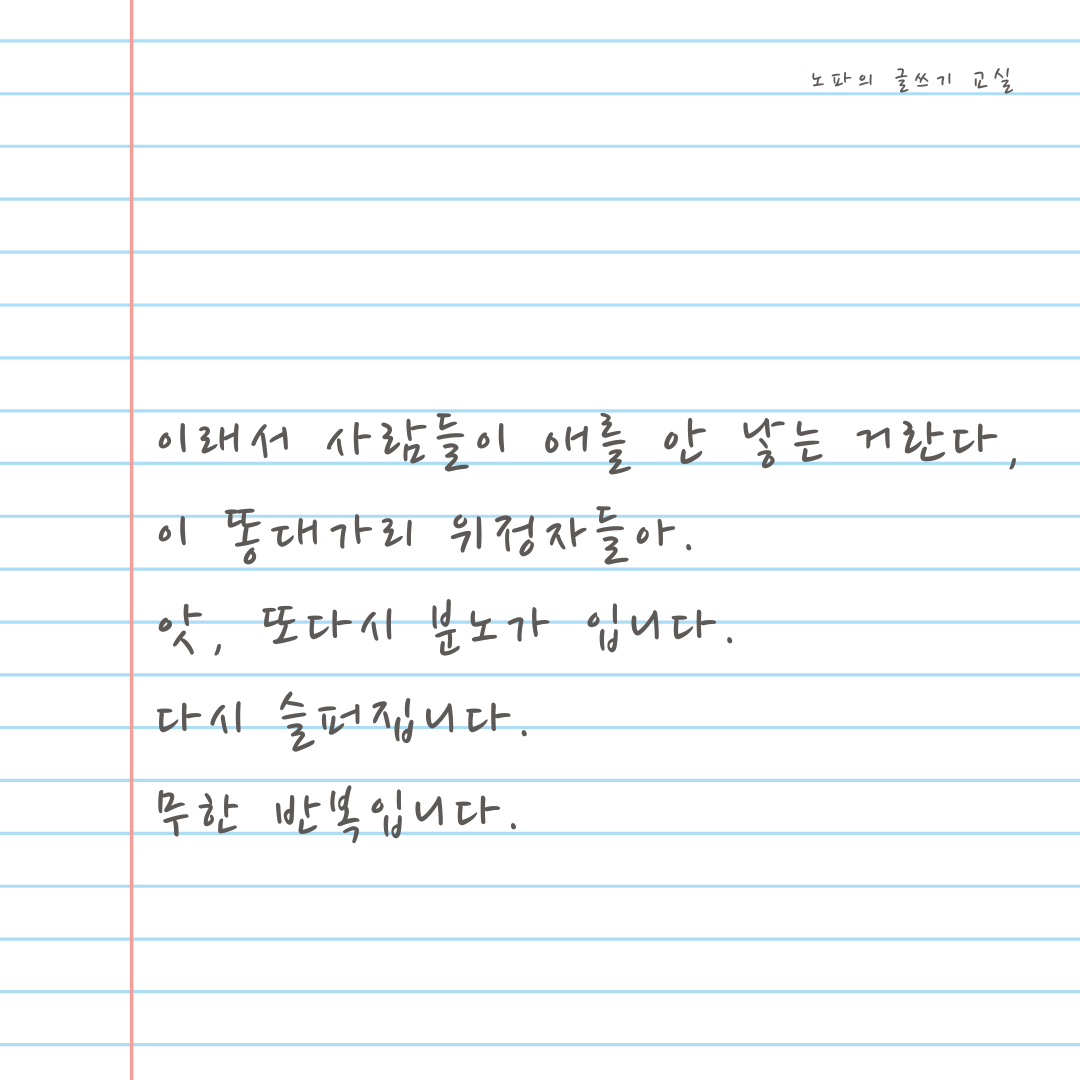 노파의 글쓰기 교실
이래서 사람들이 애를 안 낳는 거란다,
이 똥대가리 위정자들아.
앗, 또다시 분노가 입니다.
다시 슬퍼집니다.
무한 반복입니다.